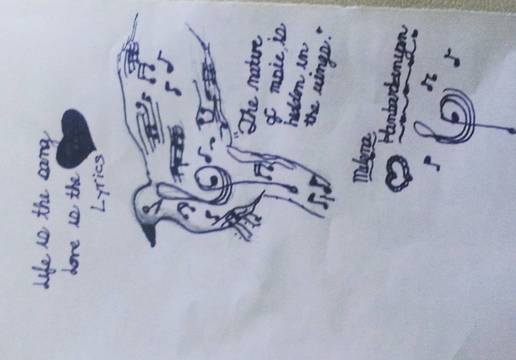 Life is the song
Love is the
Lyrics
"The native
of music is
hidden in
the wings."
Melyne